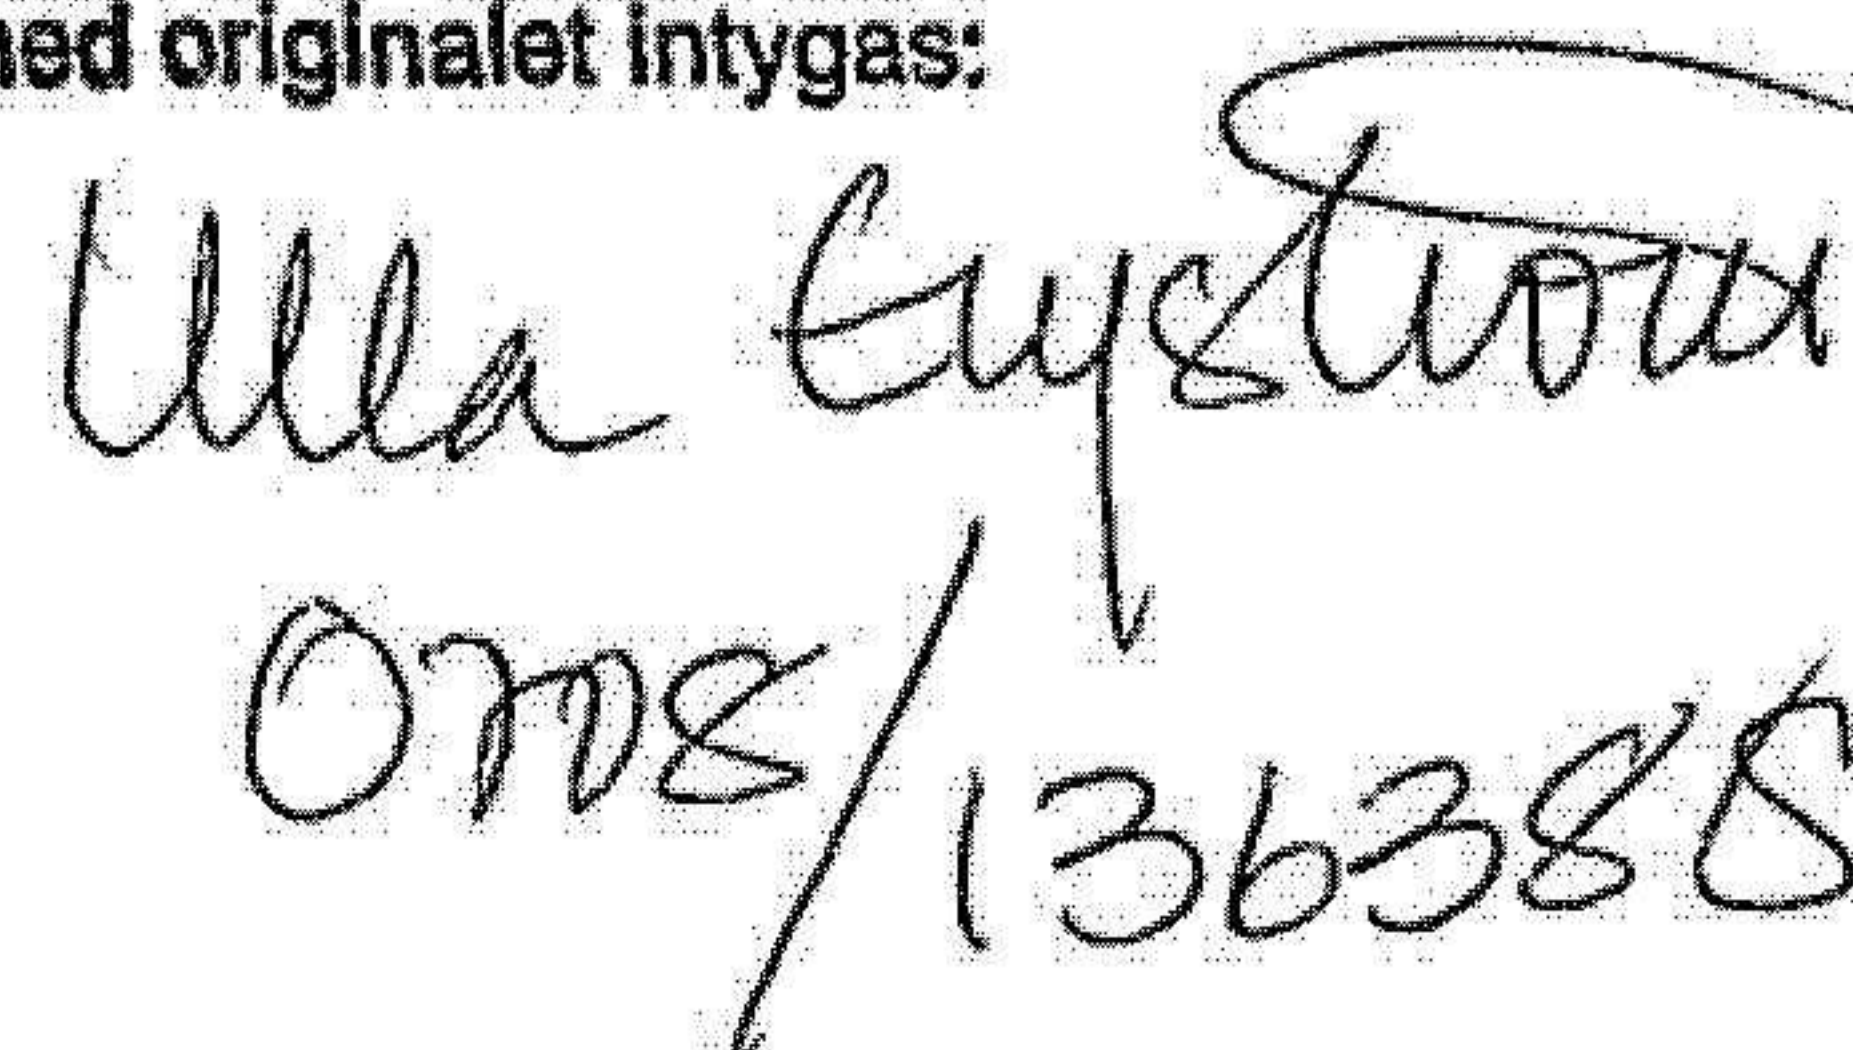 ned originalet intygas:
Ulla Enyström
0708/136388